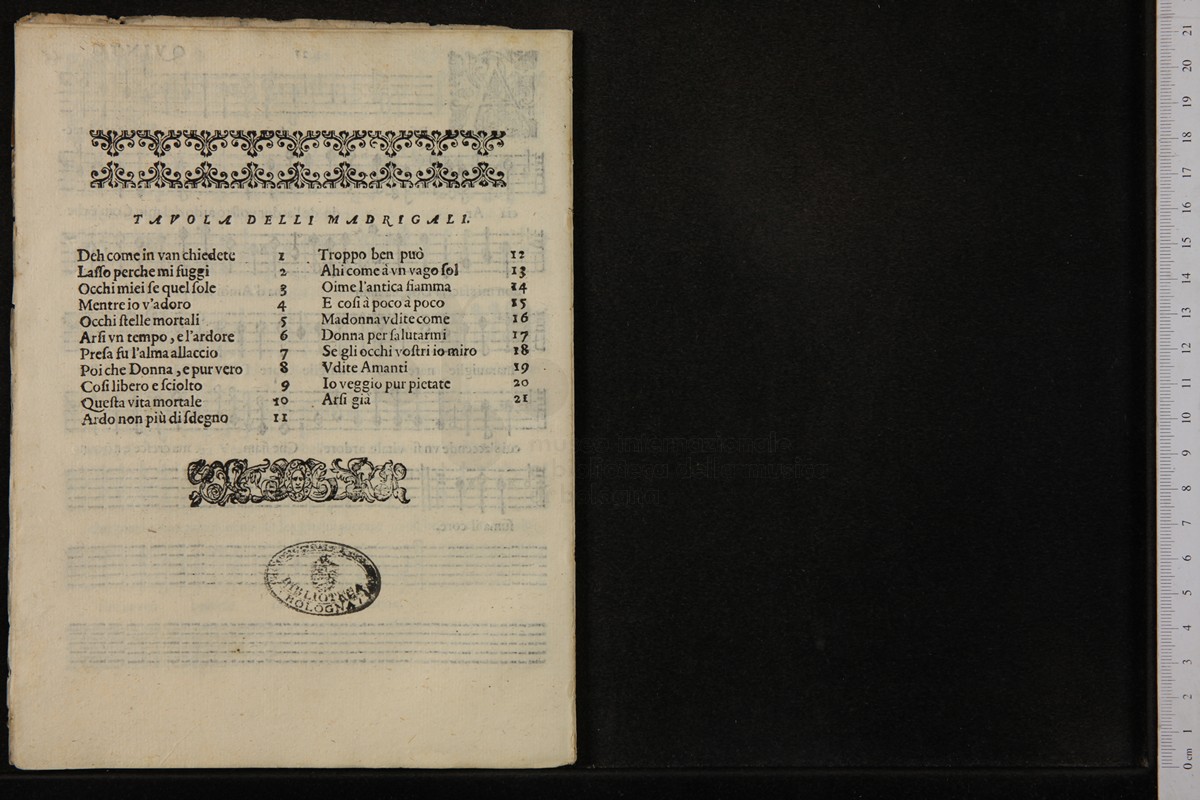 TAVOLA DELLI MADRIGALI.
Deh come in van chiedete 1
Laſſo perche mi fuggi 2
Occhi miei ſe quel ſole 3
Mentre io v'adoro 4
Occhi ſtelle mortali 5
Arſi vn tempo, e l'ardore 6
Preſa fu l'alma allaccio 7
Poi che Donna, e pur vero 8
Coſi libero e ſciolto 9
Queſta vita mortale 10
Ardo non più di ſdegno 11
Troppo ben può 12
Ahi come à vn vago ſol 13
Oime l'antica fiamma 14
E coſi à poco à poco 15
Madonna vdite come 16
Donna per ſalutarmi 17
Se gli occhi voſtri io miro 18
Vdite Amanti 19
Io veggio pur pietate 20
Arſi già 21
BIBLIOTECA
BOLOGNA
0 cm 1 2 3 4 5 6 7 8 9 10 11 12 13 14 15 16 17 18 19 20 21